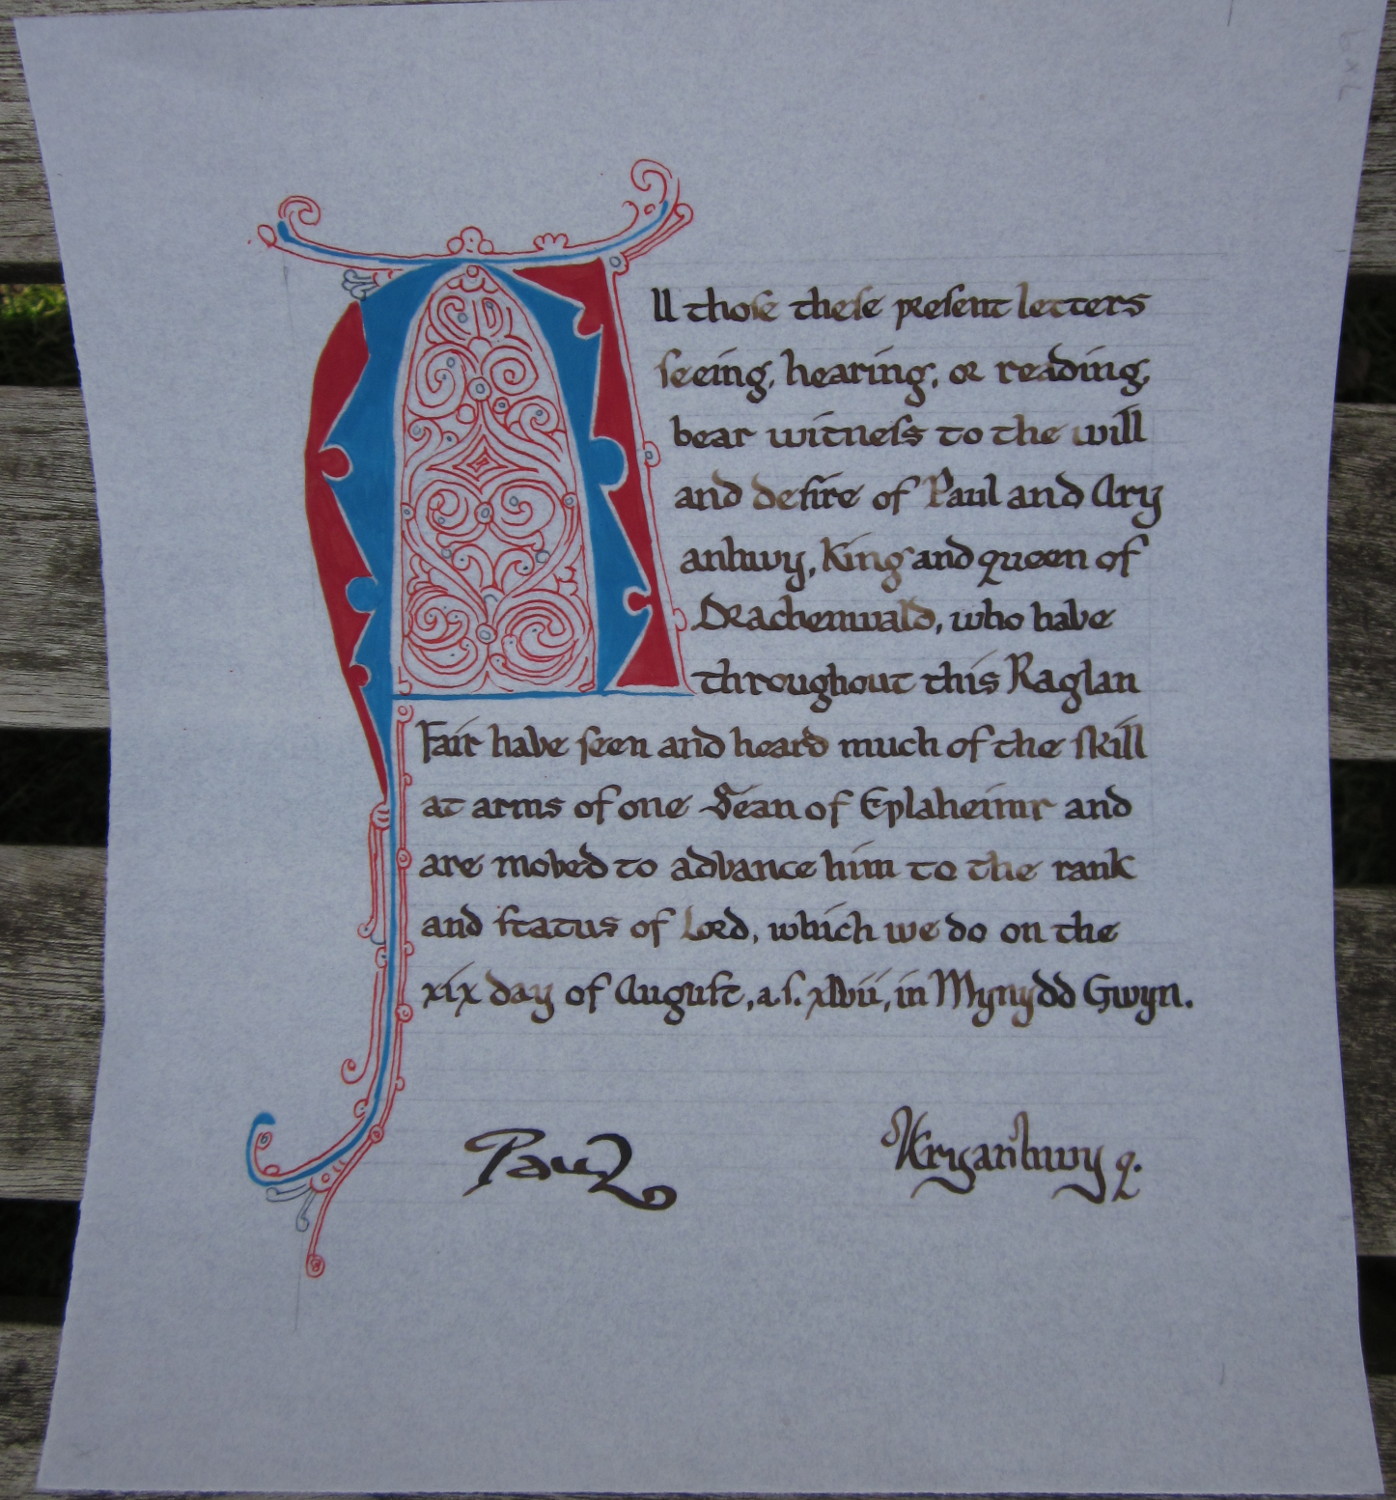 All thoſe theſe preſent letters
ſeeing, hearing, or reading,
bear witneſs to the will
and deſire of Paul and Ary
anhwy, King and queen of
Drachenwald, who have
throughout this Raglan
Fair have ſeen and heard much of the ſkill
at arms of one Sean of Eplaheimr and
are moved to advance him to the rank
and ſtatus of Lord, which we do on the
xix day of Auguſt, a.ſ. xlvii, in Mynydd Gwyn.
Paul
Aryanhwy q.